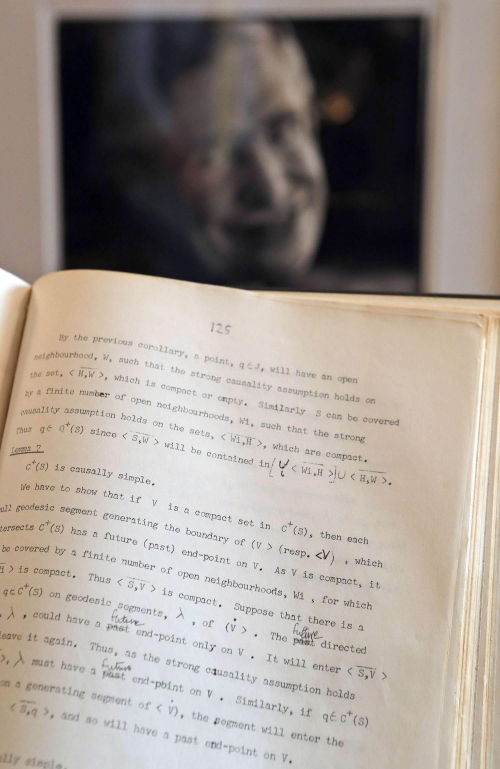 125
By the previous corollary, a point, q∈J, will have an open
neighbourhood, W, such that the strong causality assumption holds on
the set, < H,W >, which is compact or empty. Similarly S can be covered
by a finite number of open neighbourhoods, Wi, such that the strong
causality assumption holds on the sets, < Wi,H >, which are compact.
Thus q∈ C⁺(S) since < S,W > will be contained in { ∪ i < Wi,H > } ∪ < H,W >.
Lemma 7
C⁺(S) is causally simple.
We have to show that if V is a compact set in C⁺(S), then each
ull geodesic segment generating the boundary of (V > (resp. <V) , which
tersects C⁺(S) has a future (past) end-point on V. As V is compact, it
be covered by a finite number of open neighbourhoods, Wi , for which
H > is compact. Thus < S,V > is compact. Suppose that there is a
q∈C⁺(S) on geodesic segments, λ , of (V > . The past future directed
, λ , could have a past future end-point only on V . It will enter < S,V >
leave it again. Thus, as the strong causality assumption holds
>, λ must have a past future end-point on V . Similarly, if q∈C⁺(S)
on a generating segment of < V), the segment will enter the
< S,q >, and so will have a past end-point on V.
lly simple.